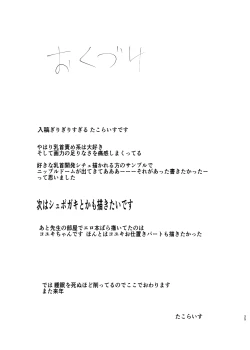 おくづけ
入稿ぎりぎりすぎる たこらいすです
やはり乳首責め系は大好き
そして画力の足りなさを痛感しまくってる
好きな乳首開発シチュ描かれる方のサンプルで
ニップルドームが出てきてあああーーーそれがあった書きたかったー
って思いました
次はシュポガキとかも描きたいです
あと先生の部屋でエロ本ばら撒いてたのは
コユキちゃんです ほんとはコユキお仕置きパートも描きたかった
では睡眠を死ぬほど削ってるのでここでおわります
また来年
たこらいす